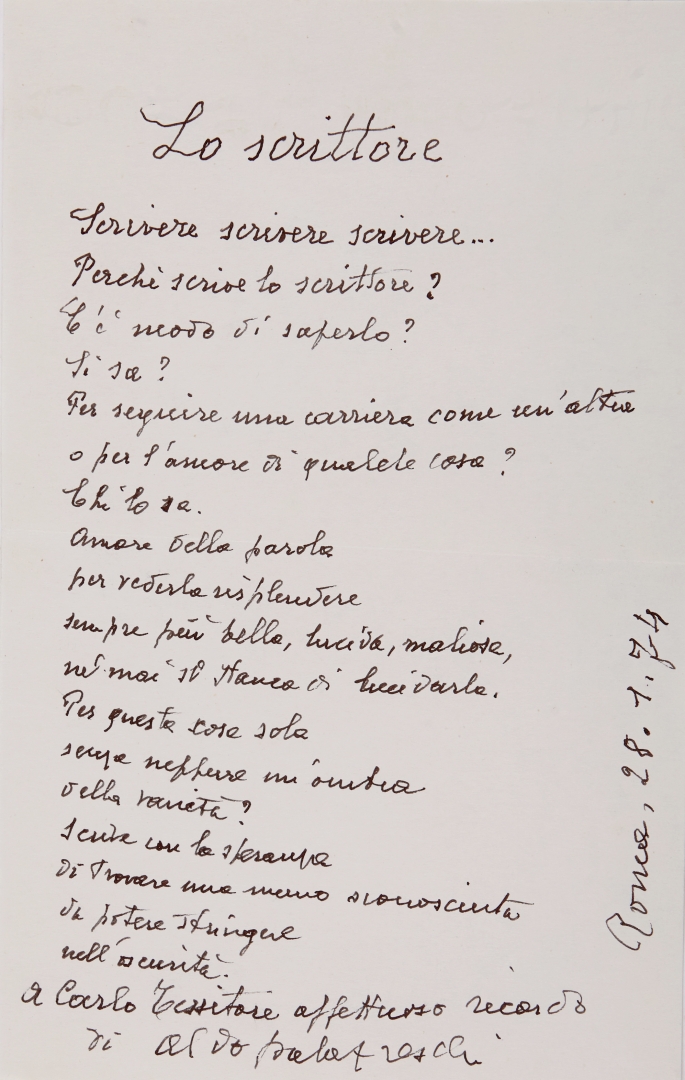 Lo scrittore
Scrivere scrivere scrivere...
Perchè scrive lo scrittore?
C'è modo di saperlo?
Si sa?
Per seguire una carriera come un'altra
o per l'amore di qualche cosa?
Chi lo sa.
Amore della parola
per vederla risplendere
sempre più bella, lucida, maliosa,
né mai si stanca di lucidarla.
Per questa cosa sola
senza neppure un'ombra
della vanità?
Scrive con la speranza
di trovare una mano sconosciuta
da potere stringere
nell'oscurità.
A Carlo Tessitore affettuoso ricordo
di Aldo Palazzeschi
Roma, 28.1.74